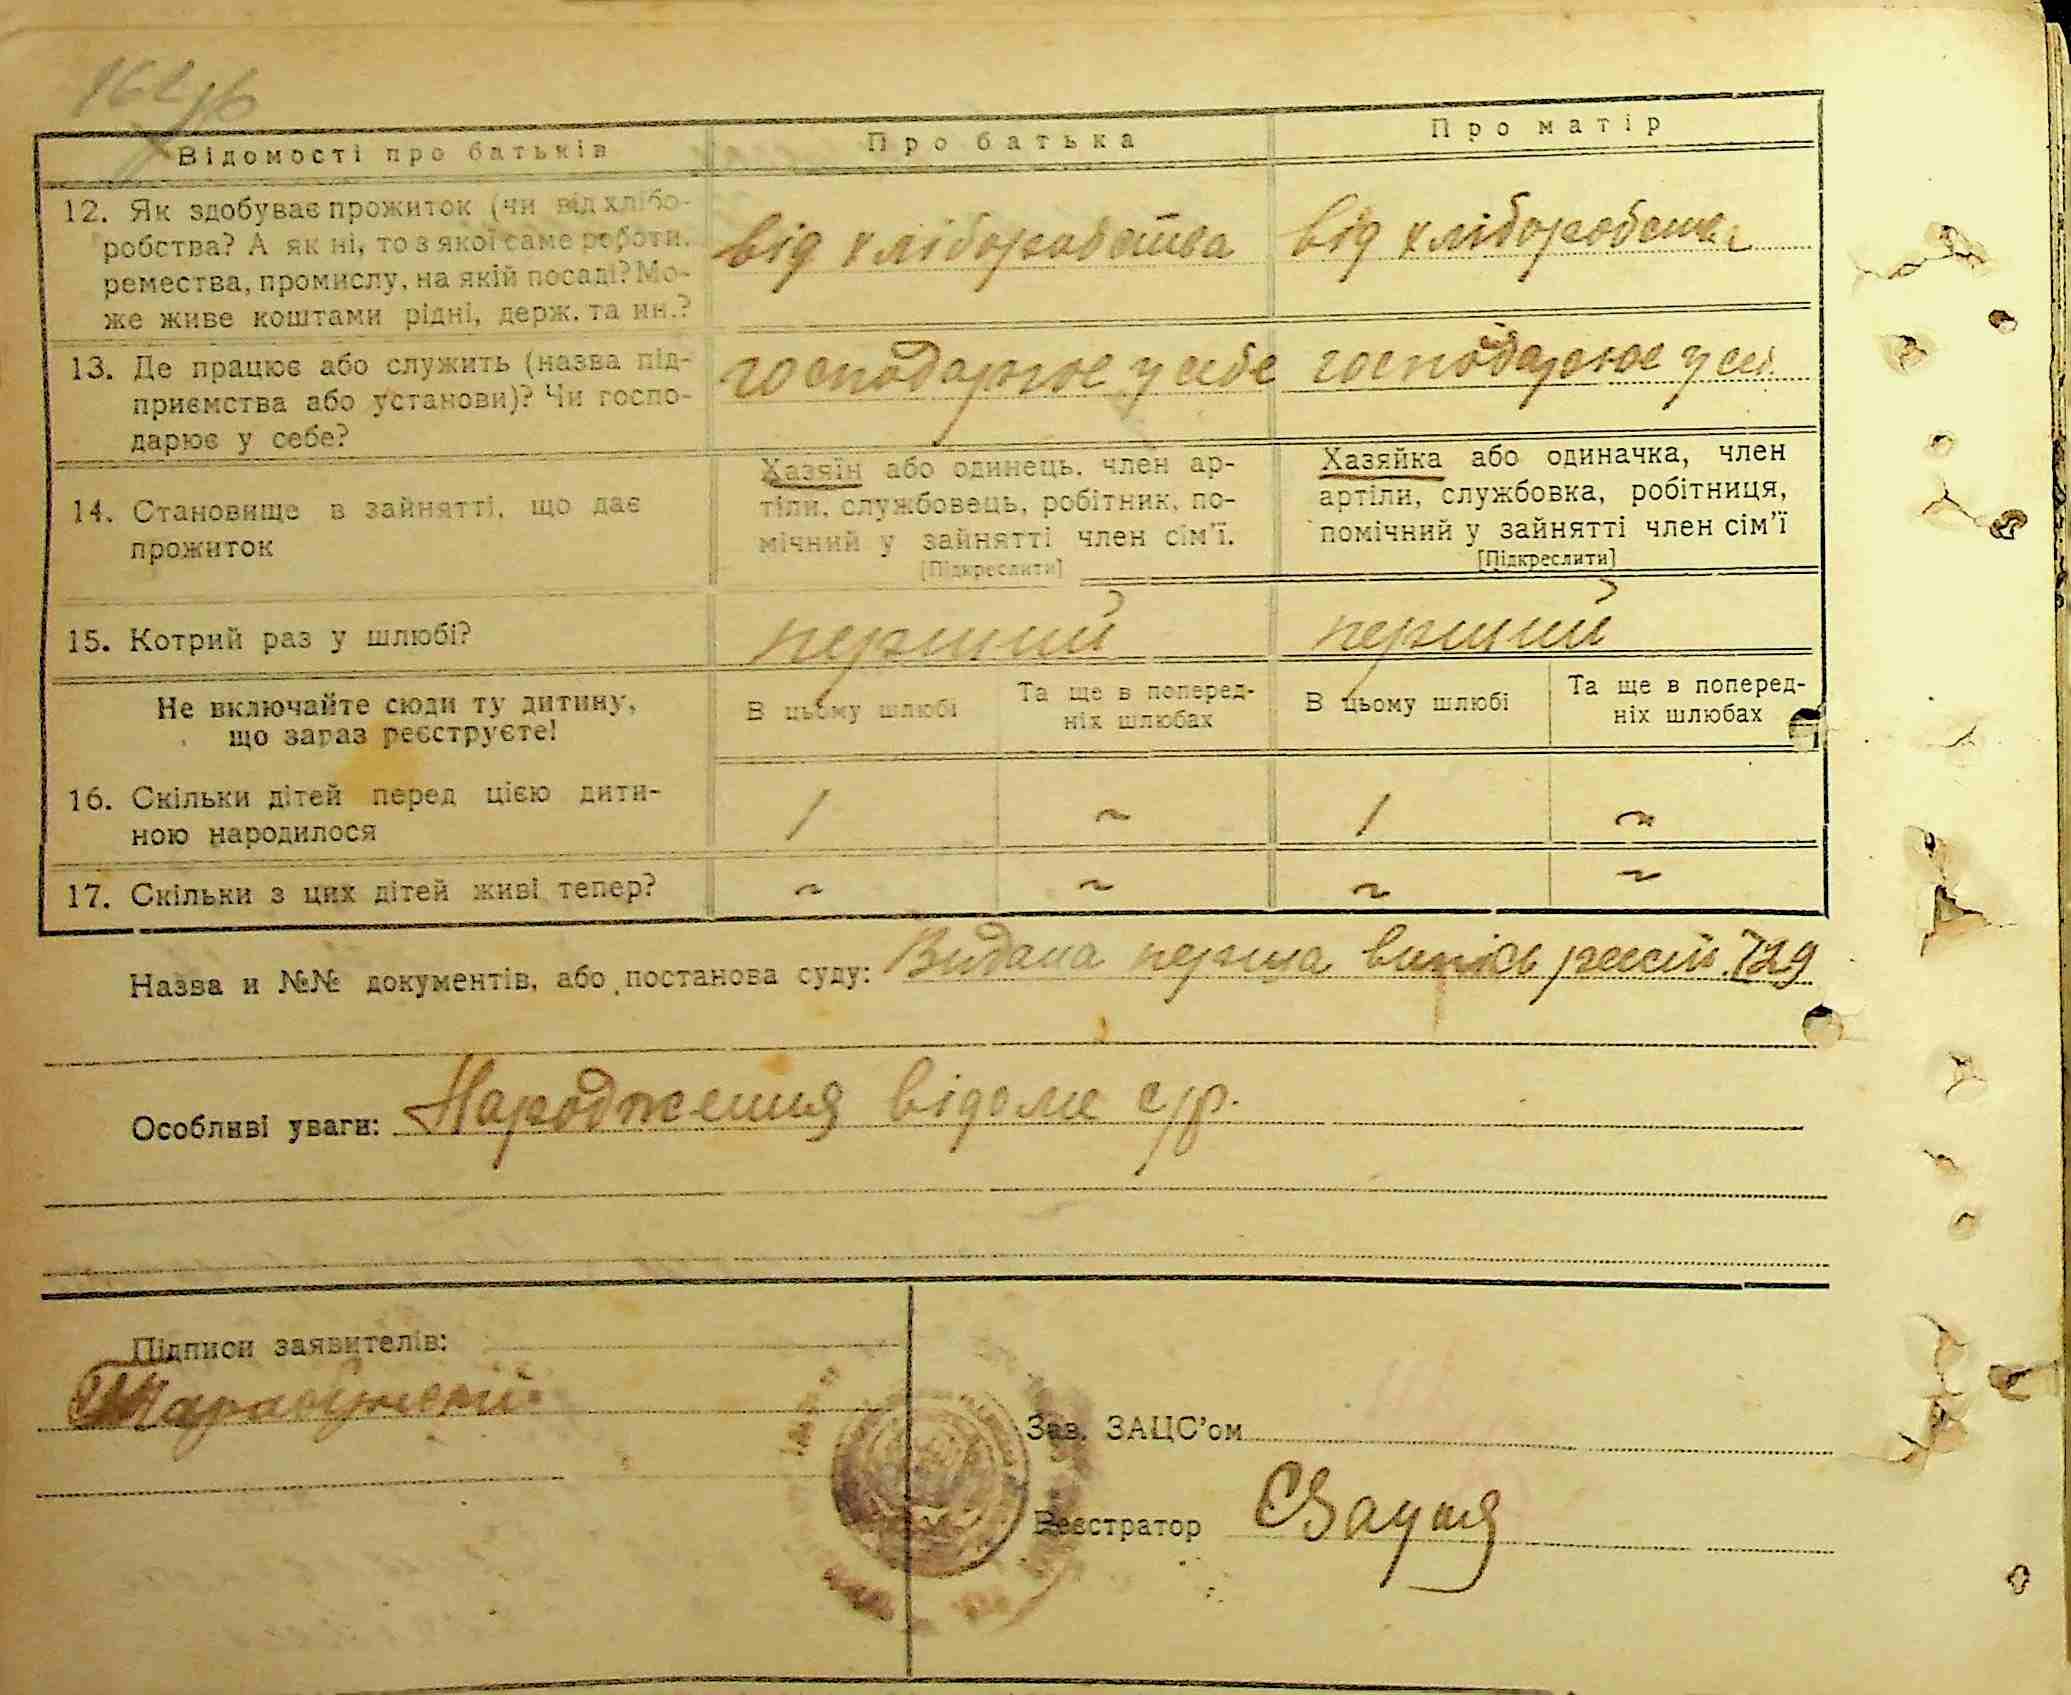 Відомості про батьків Про батька Про матір
12. Як здобуває прожиток (чи від хлібо-
робства? А як ні, то з якої саме роботи,
ремества, промислу, на якій посаді? Мо-
же живе коштами рідні, держ. та ин.?
від хліборобства від хліборобства
13. Де працює або служить (назва під-
приємства або установи)? Чи госпо-
дарює у себе?
господарює у себе господарює у себ
14. Становище в зайнятті, що дає
прожиток
Хазяїн або одинець, член ар-
тіли, службовець, робітник, по-
мічний у зайнятті член сім'ї.
[Підкреслити]
Хазяйка або одиначка, член
артіли, службовка, робітниця,
помічний у зайнятті член сім'ї
[Підкреслити]
15. Котрий раз у шлюбі? перший перший
Не включайте сюди ту дитину,
що зараз реєструєте!
В цьому шлюбі
Та ще в поперед-
ніх шлюбах
В цьому шлюбі
Та ще в поперед-
ніх шлюбах
16. Скільки дітей перед цією дити-
ною народилося
1 ~ 1 ~
17. Скільки з цих дітей живі тепер? ~ ~ ~ ~
Назва и №№ документів, або постанова суду: Видана перша випись 729
Особливі уваги: Народження відоме с/р.
Підписи заявителів:
Зав. ЗАЦС'ом
Реєстратор